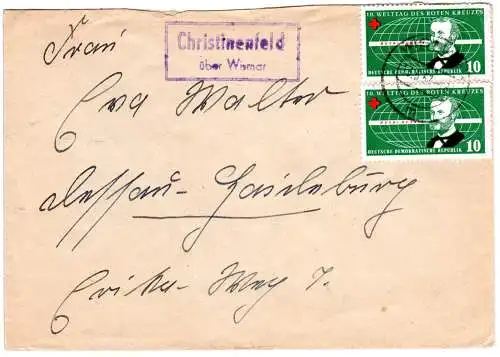 Frau
Christinenfeld
über Wismar
Eva Walter
Dessau-Haideburg
Erika-Weg 7.
10. WELTTAG DES ROTEN KREUZES
DEUTSCHE DEMOKRATISCHE REPUBLIK 10
10. WELTTAG DES ROTEN KREUZES
HENRI DUNANT
DEUTSCHE DEMOKRATISCHE REPUBLIK 10